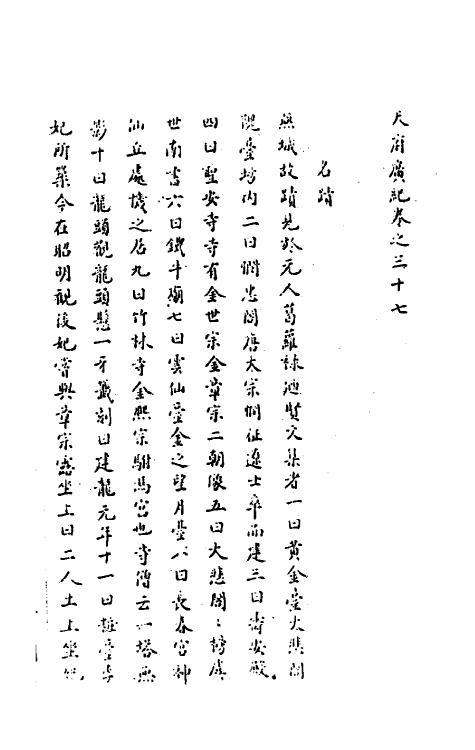 天府廣紀卷之三十七
名蹟
燕城故蹟見於元人葛邏祿迺賢文集者一曰黃金臺大悲閣
隗臺坊內二曰憫忠閣唐太宗憫征遼士卒而建三曰壽安殿
四曰聖安寺寺有金世宗金章宗二朝像五曰大悲閣閣榜虞
世南書六曰鐵牛廟七曰雲仙臺金之望月臺八曰長春宮神
仙丘處機之居九曰竹林寺金熙宗駙馬宮也寺僧云一塔無
影十曰龍頭觀龍頭懸一牙籤刻曰建龍元年十一曰粧臺李
妃所築今在昭明觀後妃嘗與章宗露坐上曰二人土上坐妃